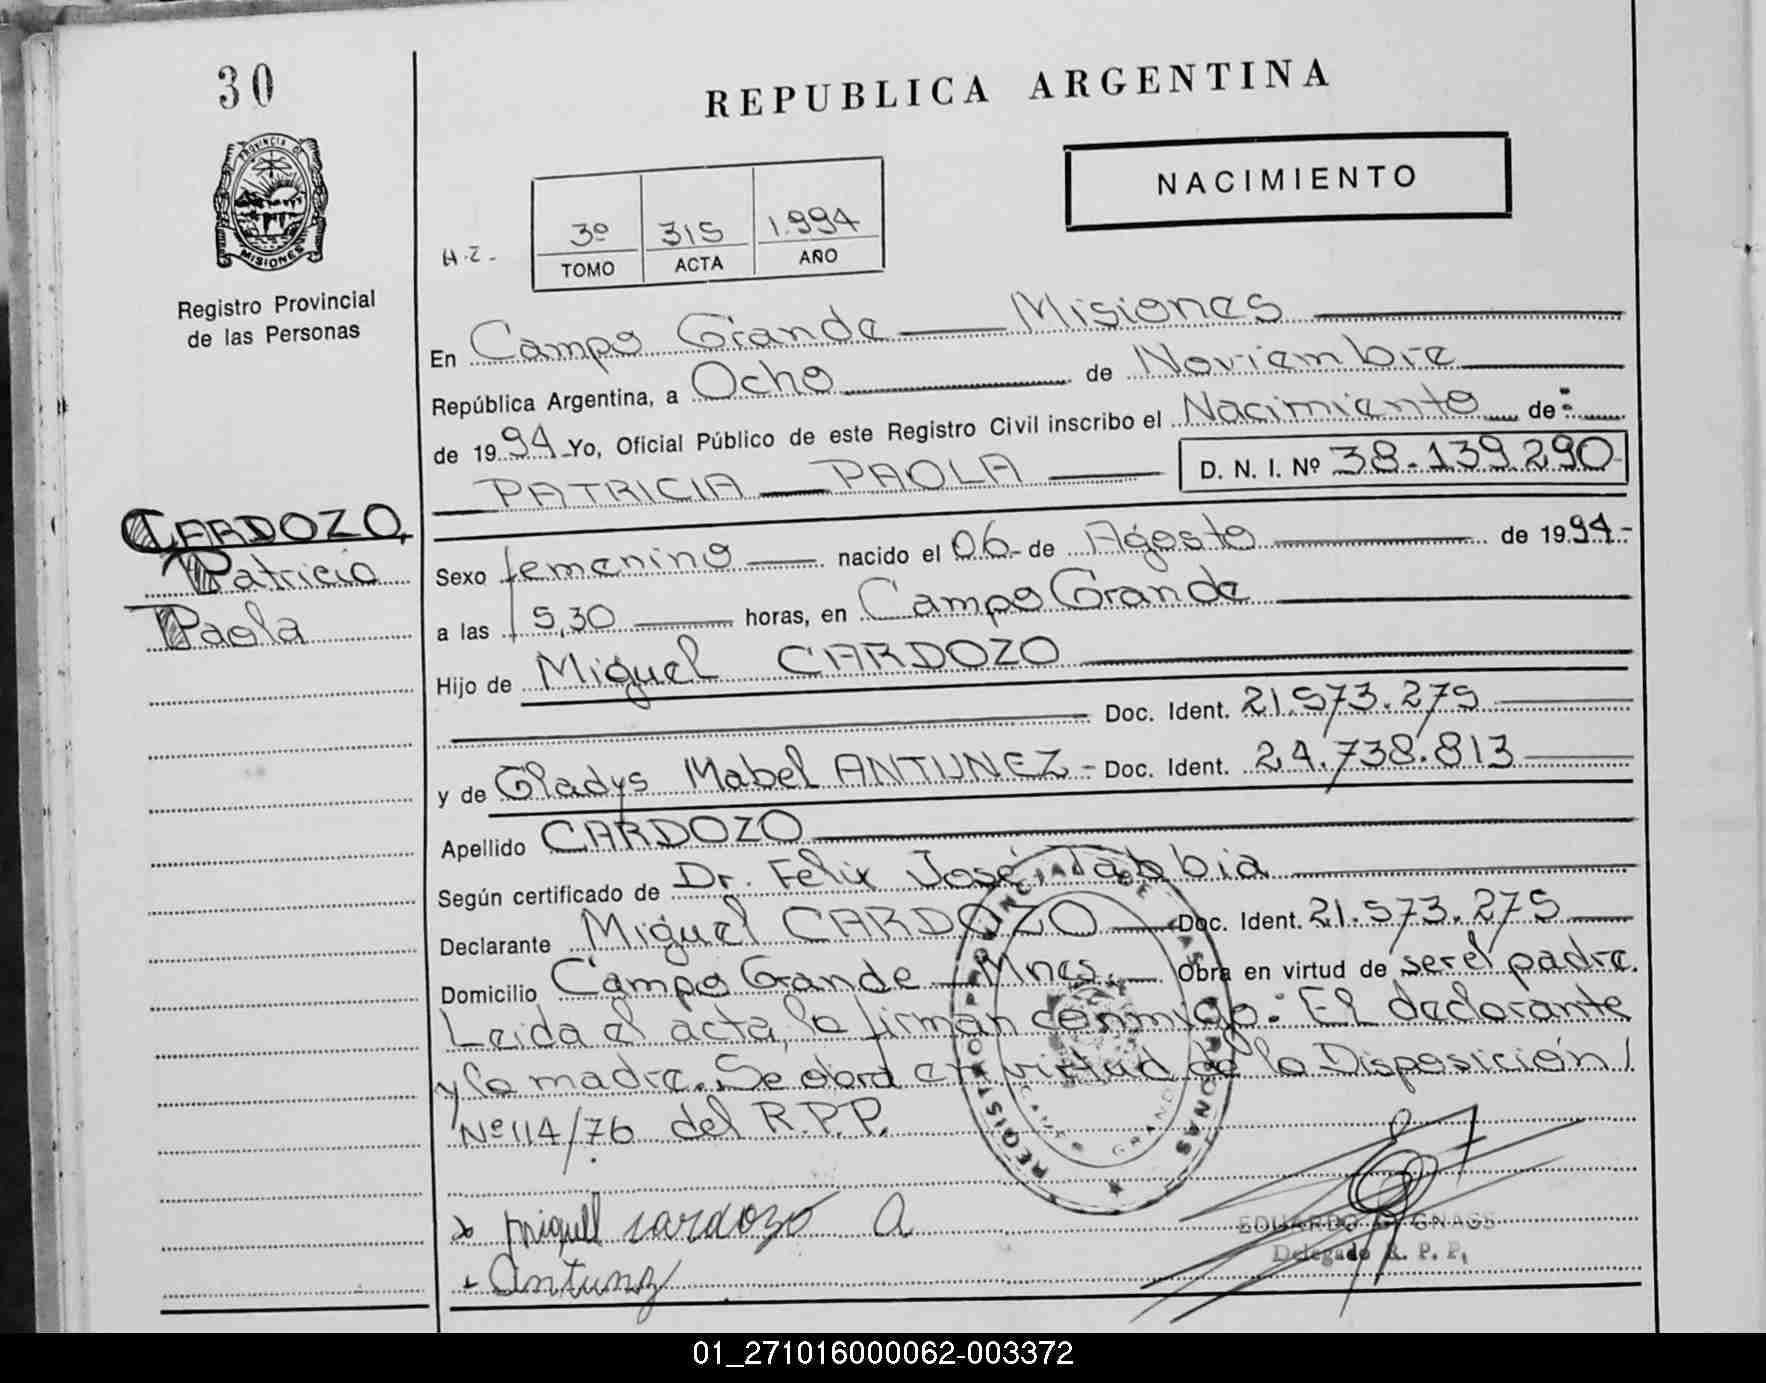 30
REPUBLICA ARGENTINA
NACIMIENTO
PROVINCIA DE
MISIONES
Registro Provincial
de las Personas
H.Z.-
3º 315 1.994
TOMO ACTA AÑO
En Campo Grande Misiones
República Argentina, a Ocho de Noviembre
de 1994 Yo, Oficial Público de este Registro Civil inscribo el Nacimiento de:
PATRICIA PAOLA D. N. I. Nº 38.139.290
CARDOZO,
Patricia
Paola
Sexo femenino nacido el 06 de Agosto de 1994.-
a las 15,30 horas, en Campo Grande
Hijo de Miguel CARDOZO
Doc. Ident. 21.573.275
y de Gladys Mabel ANTUNEZ - Doc. Ident. 24.738.813
Apellido CARDOZO
Según certificado de Dr. Felix José Jabbia
Declarante Miguel CARDOZO Doc. Ident. 21.573.275
Domicilio Campo Grande Mnes. Obra en virtud de ser el padre.
Leida el acta, la firman conmigo: El declarante
y la madre. Se obra en virtud de la Disposición
Nº 114/76 del R.P.P.
REGISTRO PROVINCIAL DE LAS PERSONAS
CAMPO GRANDE
miguel cardozo A
Antunez
EDUARDO GNASS
Delegado R. P. P.
01_271016000062-003372